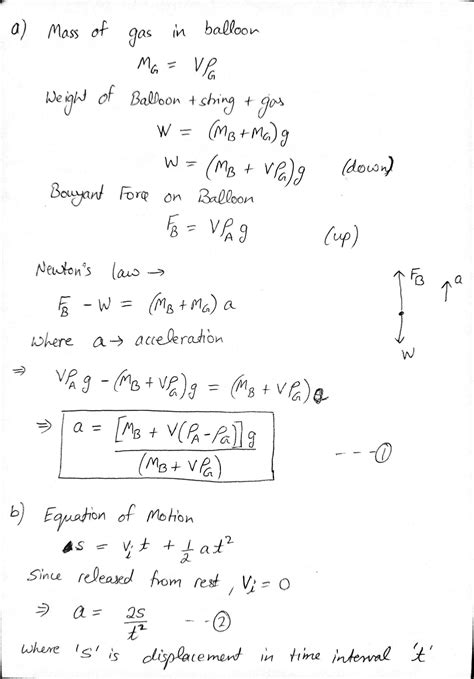 a) Mass of gas in balloon
M_G = Vρ_G
Weight of Balloon + string + gas
W = (M_B + M_G) g
W = (M_B + Vρ_G) g (down)
Bouyant Force on Balloon
F_B = Vρ_A g (up)
Newton's law →
F_B - W = (M_B + M_G) a
where a → acceleration
⇒ Vρ_A g - (M_B + Vρ_G) g = (M_B + Vρ_G) a
⇒ a = [M_B + V(ρ_A - ρ_G)] g / (M_B + Vρ_G) --- ①
F_B
a
W
b) Equation of Motion
s = v_i t + 1/2 at²
Since released from rest, V_i = 0
⇒ a = 2s / t² -- ②
where 's' is displacement in time interval 't'